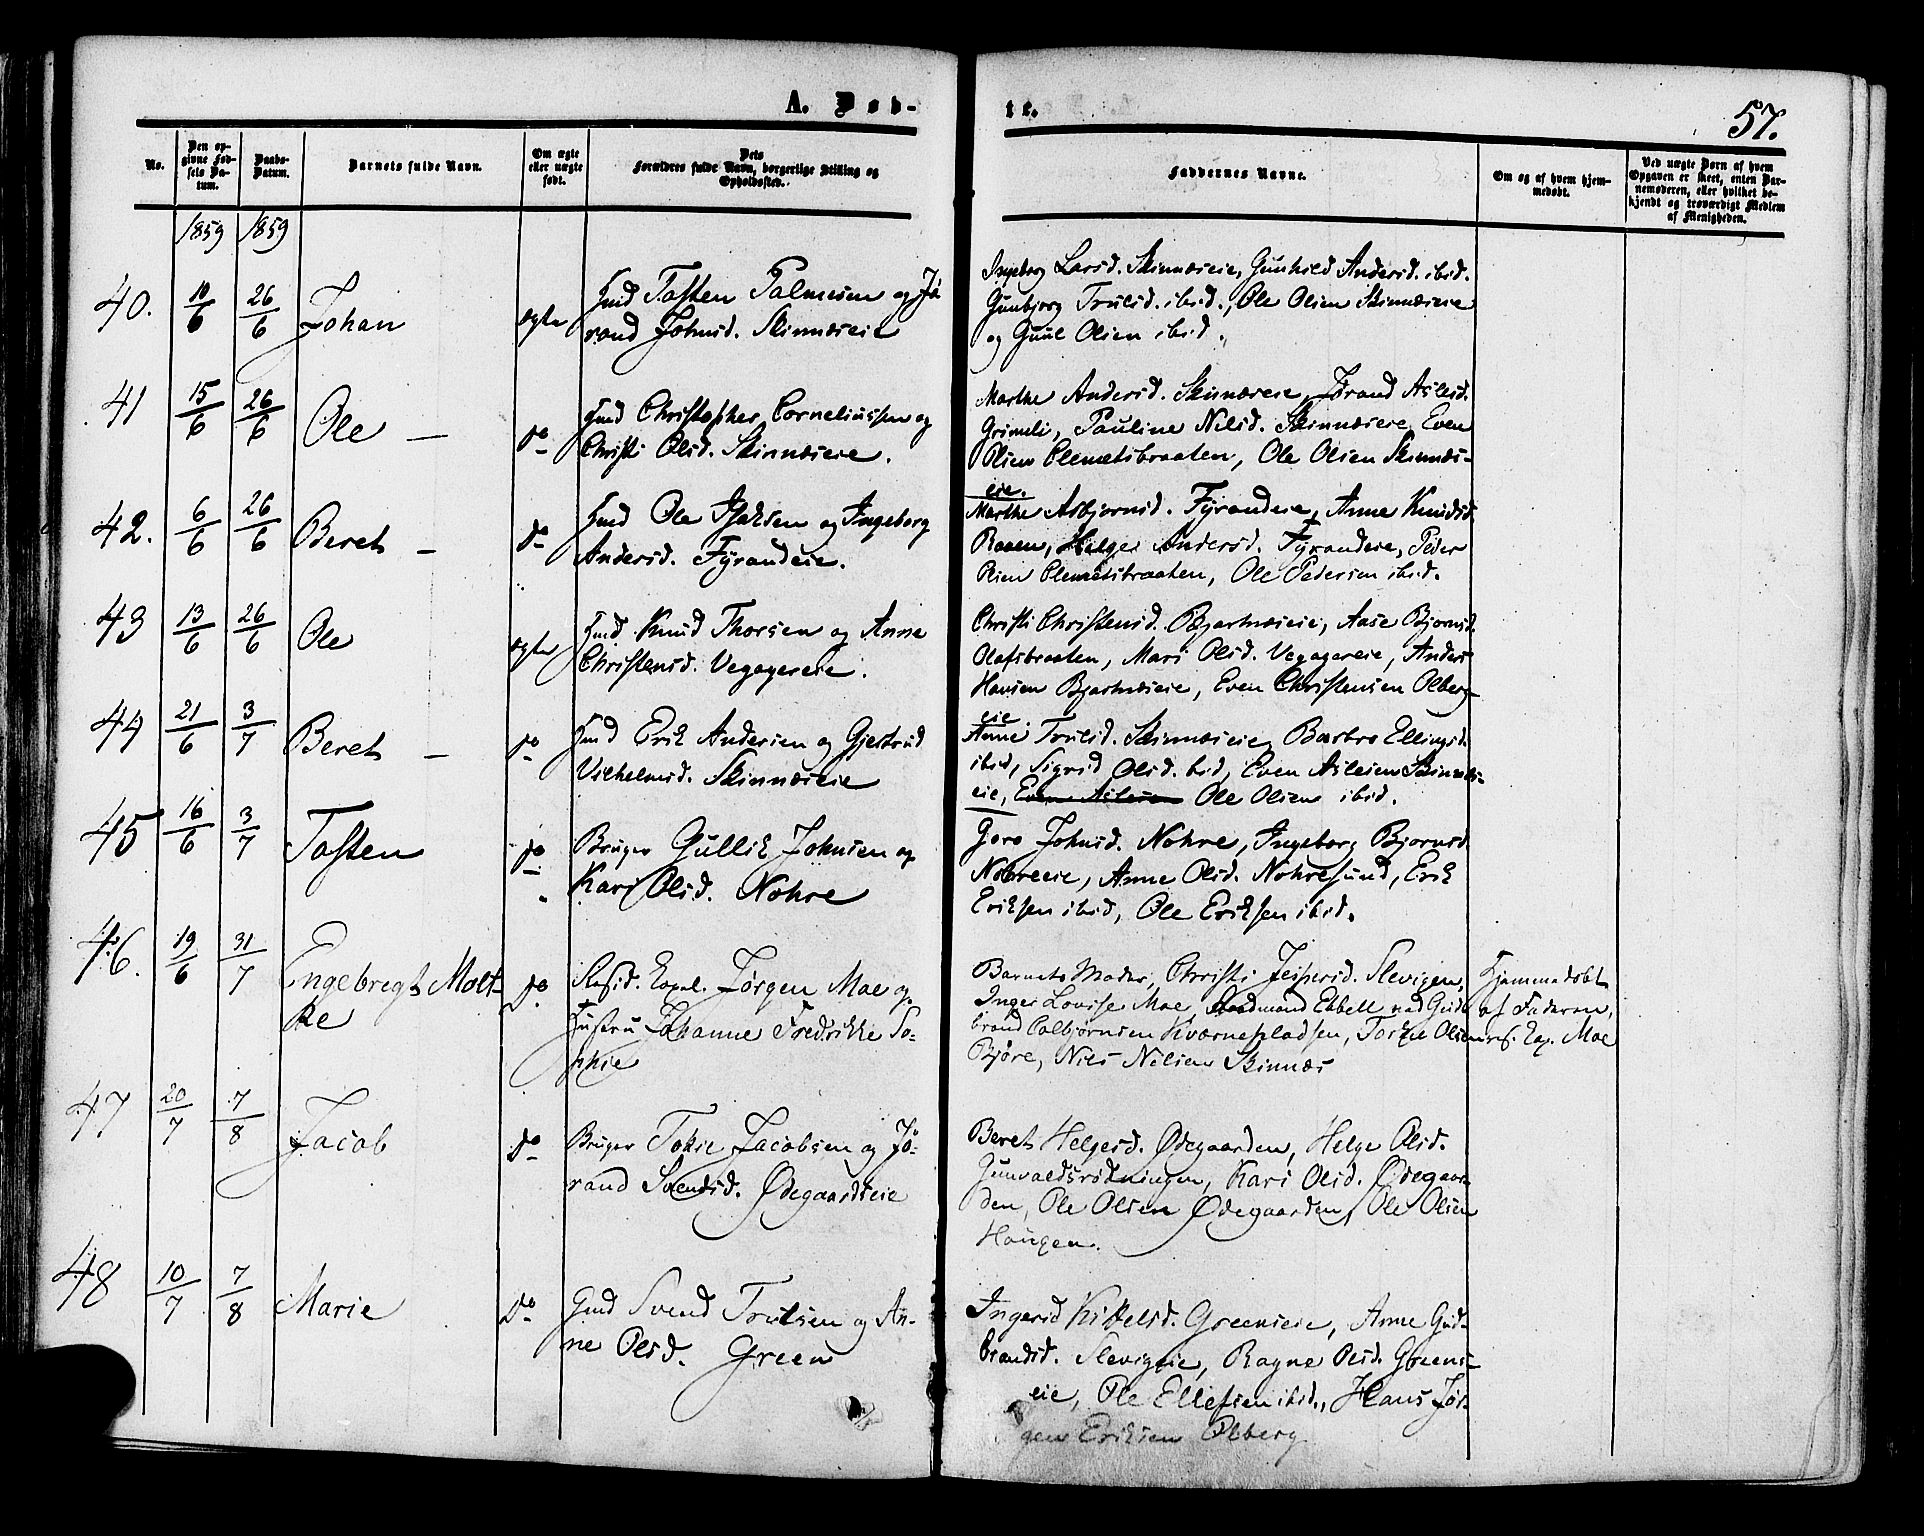 A. Døb-
te.
57.
No.
Den op-
givne Fød-
sels Da-
tum.
Daabs-
Datum.
Barnets fulde Navn.
Om ægte
eller uægte
født.
Dets
Forældres fulde Navn, borgerlige Stilling og
Opholdssted.
Faddernes Navne.
Om og af hvem hjem-
medøbt.
Ved uægte Børn af hvem
Opgaven er skeet, enten Bar-
nemoderen, eller hvilket be-
kjendt og troværdigt Medlem
af Menigheden.
1859 1859
40. 10/6 26/6 Johan ægte
Hmd Tosten Palmesen og Jø
rand Johnsd. Skinnæseie
Ingeborg Larsd. Skinnæseie, Gunhild Andersd. ibid.
Gunbjørg Trulsd. ibid., Ole Olsen Skinnæseie
og Guul Olsen ibid.
41 15/6 26/6 Ole — do
Hmd Christopher Corneliussen og
Christi Olsd. Skinnæseie.
Marthe Andersd. Skinnæseie, Jørand Aslesd.
Grimeli, Pauline Nilsd. Skinnæseie, Even
Olsen Clemetsbraaten, Ole Olsen Skinnæs-
eie.
42. 6/6 26/6 Beret — do
Hmd Ole Isaksen og Ingeborg
Andersd. Fyrandeie.
Marthe Asbjørnsd. Fyrandeie, Anne Knudsd
Raaen, Helge Andersd. Fyrandeie, Peder
Olsen Clemetsbraaten, Ole Pedersen ibid.
43 13/6 26/6 Ole ægte
Hmd Knud Thorsen og Anne
Christensd. Vegagereie.
Christi Christensd. Bjartnæseie, Aase Bjørnsd.
Olafsbraaten, Mari Olsd. Vegagereie, Anders
Hansen Bjartnæseie, Even Christensen Olberg-
eie
44 21/6 3/7 Beret — do
Hmd Erik Andersen og Gjertrud
Vilhelmsd. Skinnæseie
Anne Trulsd. Skinnæseie, Barbro Ellingsd.
ibid, Sigrid Olsd. ibid, Even Aslesen Skinnæs-
eie, Even Aslesen Ole Olsen ibid.
45 16/6 3/7 Tosten do
Bruger Gullik Johnsen og
Kari Olsd. Nohre
Goro Johnsd. Nohre, Ingeborg Bjørnsd
Nohreeie, Anne Olsd. Nohresund, Erik
Eriksen ibid, Ole Eriksen ibid.
46. 19/6 31/7 Engebregt Molt-
ke do
Resid. Capel. Jørgen Moe og
Hustru Johanne Fredrikke So-
phie
Barnets Moder, Christi Jespersd. Slevigen,
Inger Lovise Moe, Ebbell ved Guld
brand Colbjørnsen Kværnepladsen, Torkel Olsen
Bjøre, Nils Nilsen Skinnæs
Hjemmedøbt
af Faderen,
res. Cap. Moe
47 20/7 7/8 Jacob do
Bruger Tokie Jacobsen og Jø-
rand Svendsd. Ødegaardseie
Beret Helgesd. Ødegaarden, Helge Olsd.
Gunvaldsrødningen, Kari Olsd. Ødegaar-
den, Ole Olsen Ødegaarden, Ole Olsen
Haugen.
48 10/7 7/8 Marie do
Gmd Svend Trulsen og An-
ne Olsd. Green
Ingerid Kittelsd. Greeneie, Anne Gud-
brandsd. Slevigeie, Ragne Olsd. Greens-
eie, Ole Ellefsen ibid., Hans Jør-
gen Eriksen Olberg